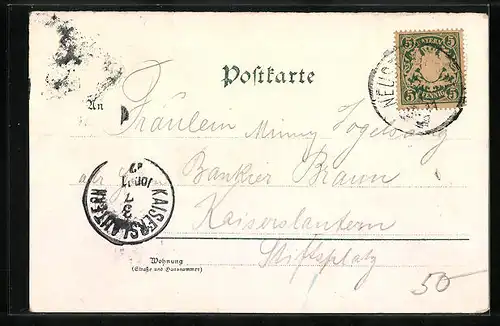 Postkarte
BAYERN
5 5
An
Fräulein Minny Vogelsang
Bankier Braun
Kaiserslautern
Stiftsplatz
KAISERSLAUTERN
Wohnung
(Straße und Hausnummer)
50